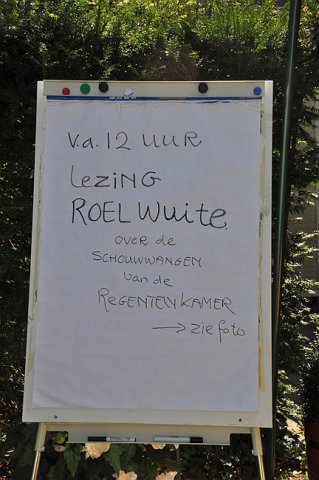 v.a. 12 UUR
LeZING
ROEL Wuite.
OVER de
SCHOUWWANGEN
van de
ReGENTEN KAMER
→ zie foto